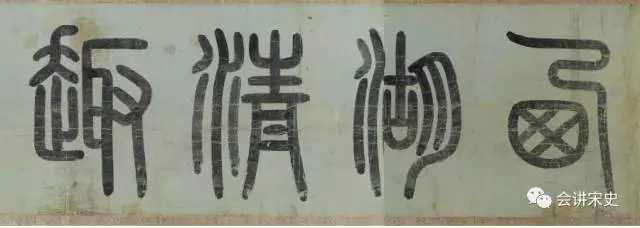 西湖清趣
会讲宋史